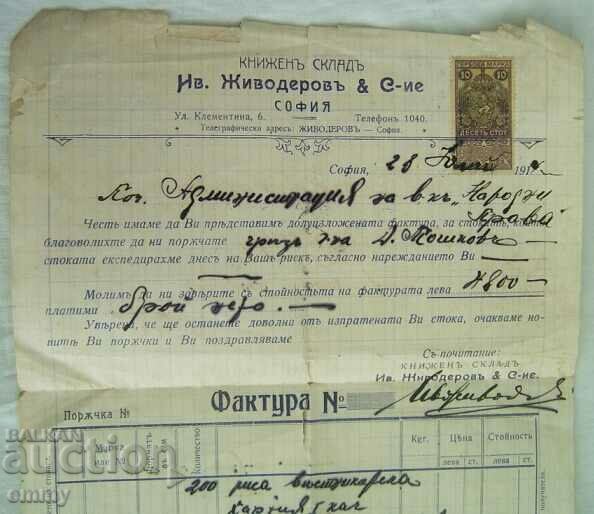 КНИЖЕНЪ СКЛАДЪ
Ив. Живодеровъ & С-ие
СОФИЯ
Ул. Клементина, 6. Телефонъ 1040.
Телеграфически адресъ: ЖИВОДЕРОВЪ — София.
10 10
ДЕСЕТЬ СТОТ.
София, 28 Юлий 191
Администрация на в-къ „Народни
Права"
Честь имаме да Ви прѣдставимъ долуизложената фактура, за стоката,
благоволихте да ни поржчате чрезъ г-на Д. Тошковъ
стоката експедирахме днесъ на Вашъ рискъ, съгласно нареждането Ви —
Молимъ да ни завѣрите съ стойностьта на фактурата лева 4800 —
платими брой нето. —
Увѣрени, че ще останете доволни отъ изпратената Ви стока, очакваме но-
витѣ Ви поржчки и Ви поздравляваме
Съ почитание:
КНИЖЕНЪ СКЛАДЪ
Ив. Живодеровъ & С-ие.
Поржчка № Фактура №
Марка
или №
Количество
Кгг. Цѣна Стойность
лева ст. лева ст.
200 риса вѣстникарска
хартия
BALKAN
auction
emmy